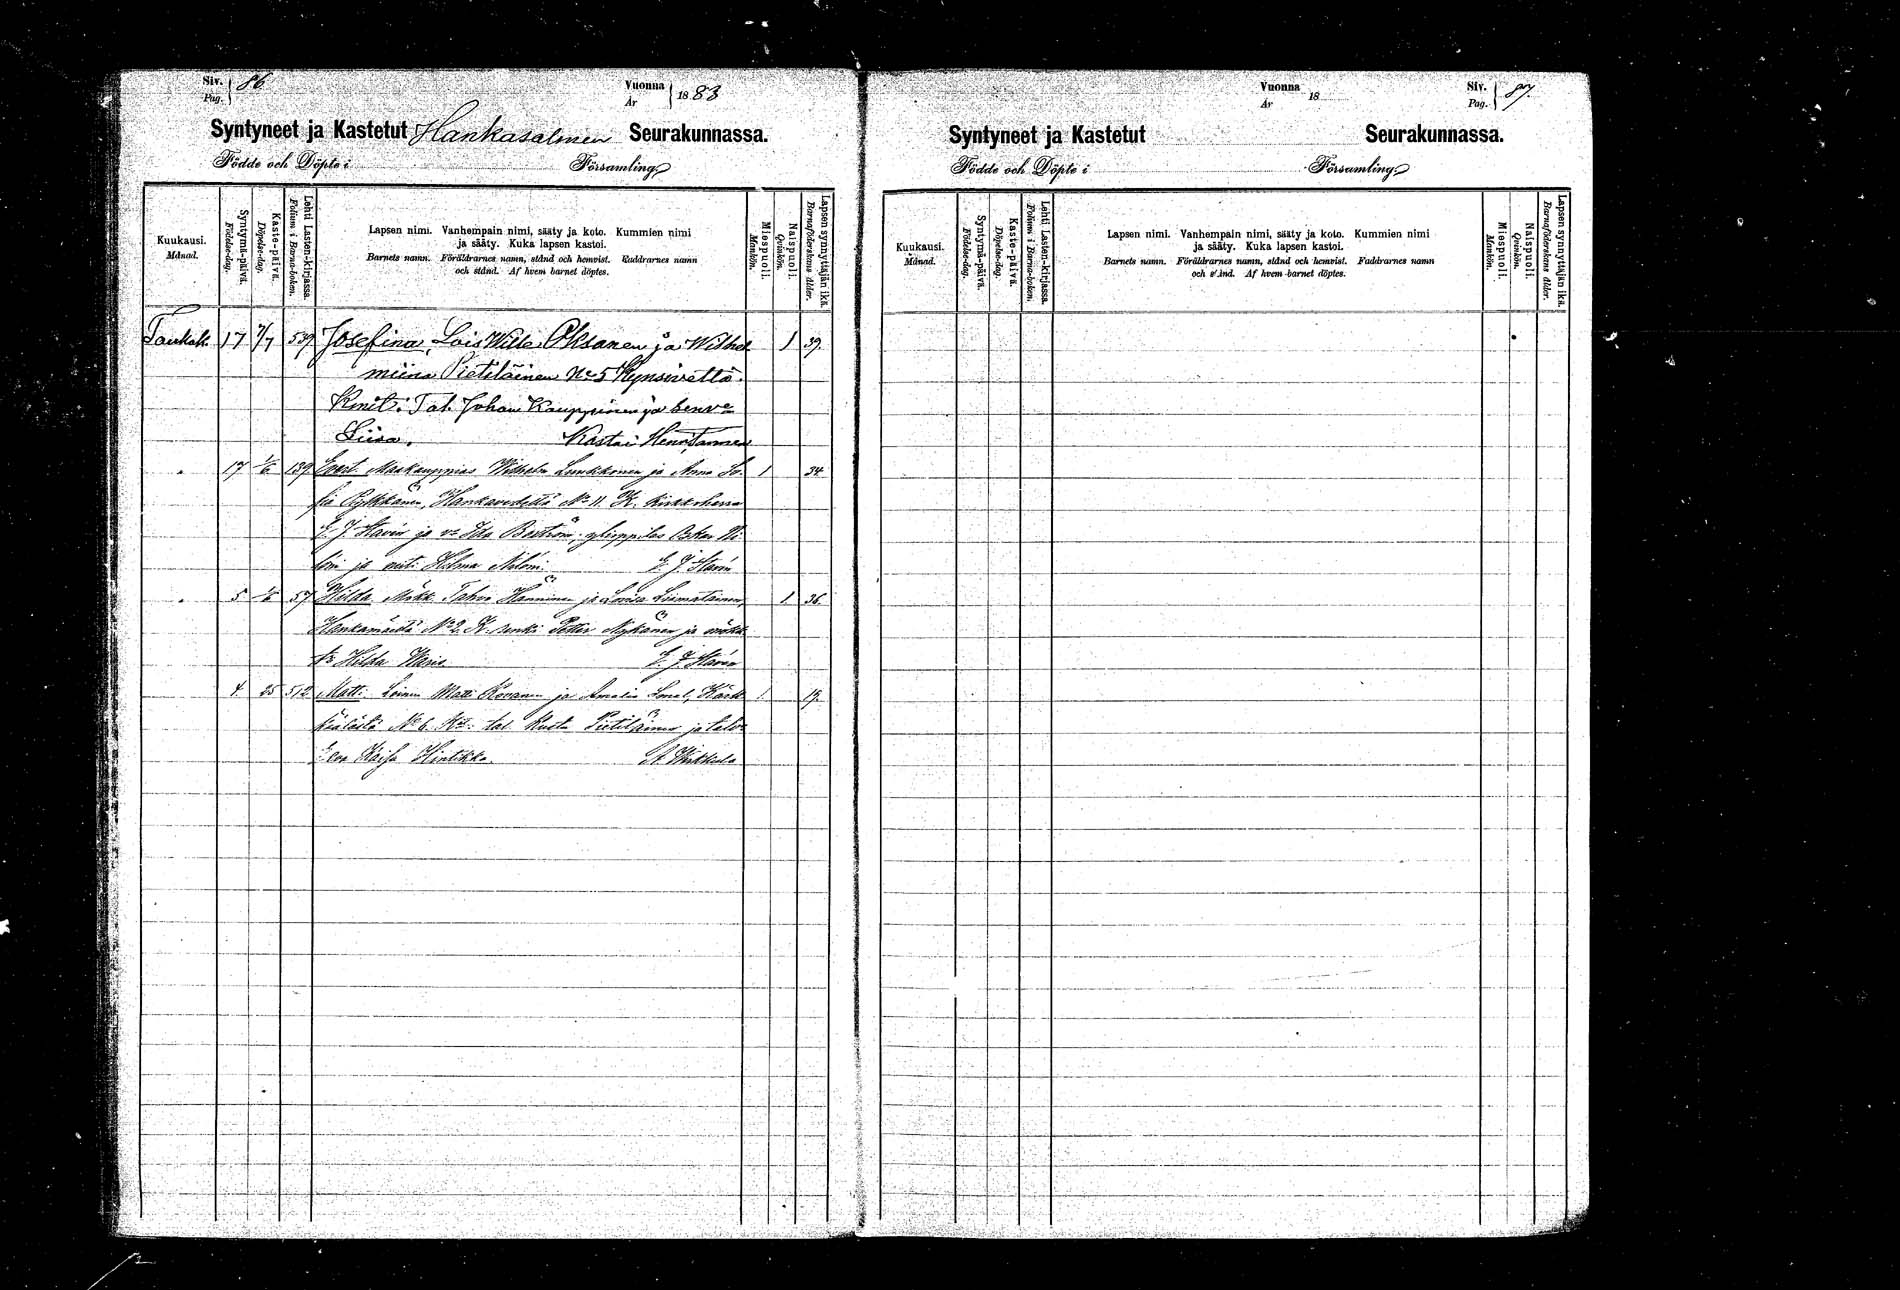 Siv. Pag. 86.
Vuonna År 1883
Syntyneet ja Kastetut Hankasalmen Seurakunnassa.
Födde och Döpte i Församling.
Kuukausi. Månad.
Syntymä-päivä. Födelse-dag.
Kaste-päivä. Döpelse-dag.
Lehti Lasten-kirjassa. Folium i Barna-boken.
Lapsen nimi. Vanhempain nimi, sääty ja koto. Kummien nimi
ja sääty. Kuka lapsen kastoi.
Barnets namn. Föräldrarnes namn, stånd och hemvist. Faddrarnes namn
och stånd. Af hvem barnet döptes.
Miespuoli. Mankön.
Naispuoli. Qvinkön.
Lapsen synnyttäjän ikä. Barnaföderskans ålder.
Toukok. 17 7/7 539 Josefina, Lois Wille Oksanen ja Wilhel 1 39.
miina Pietiläinen No 5 Kynsivettä.
Kmit: Tal. Johan Kauppinen ja
Liisa. Kastoi
17 1/6 139 Maakauppias Wilhelm Lunkkonen ja Anna So- 1 34
fia Pylkkänen, Hankavedeltä No 11. K. kirkkoherra
E. J. Stavén ja Ida Boström, ylioppilas
ja neiti Helma E. J. Stavén
5 57 Hilda Mökk. Tahvo Hänninen ja Lovisa Liimatainen, 1. 36.
Hankamäeltä No 2. K. renki Petter Nykänen ja mökk.
Hilda E. J. Stavén
4. 25 512 Matti Loinen Matti Kovanen ja Amalia 1 19.
No 6. tal. Kusta Pietiläinen ja
Eva Kaisa Hintikka.
Vuonna År 18
Siv. Pag. 87.
Syntyneet ja Kastetut Seurakunnassa.
Födde och Döpte i Församling.
Kuukausi. Månad.
Syntymä-päivä. Födelse-dag.
Kaste-päivä. Döpelse-dag.
Lehti Lasten-kirjassa. Folium i Barna-boken.
Lapsen nimi. Vanhempain nimi, sääty ja koto. Kummien nimi
ja sääty. Kuka lapsen kastoi.
Barnets namn. Föräldrarnes namn, stånd och hemvist. Faddrarnes namn
och stånd. Af hvem barnet döptes.
Miespuoli. Mankön.
Naispuoli. Qvinkön.
Lapsen synnyttäjän ikä. Barnaföderskans ålder.